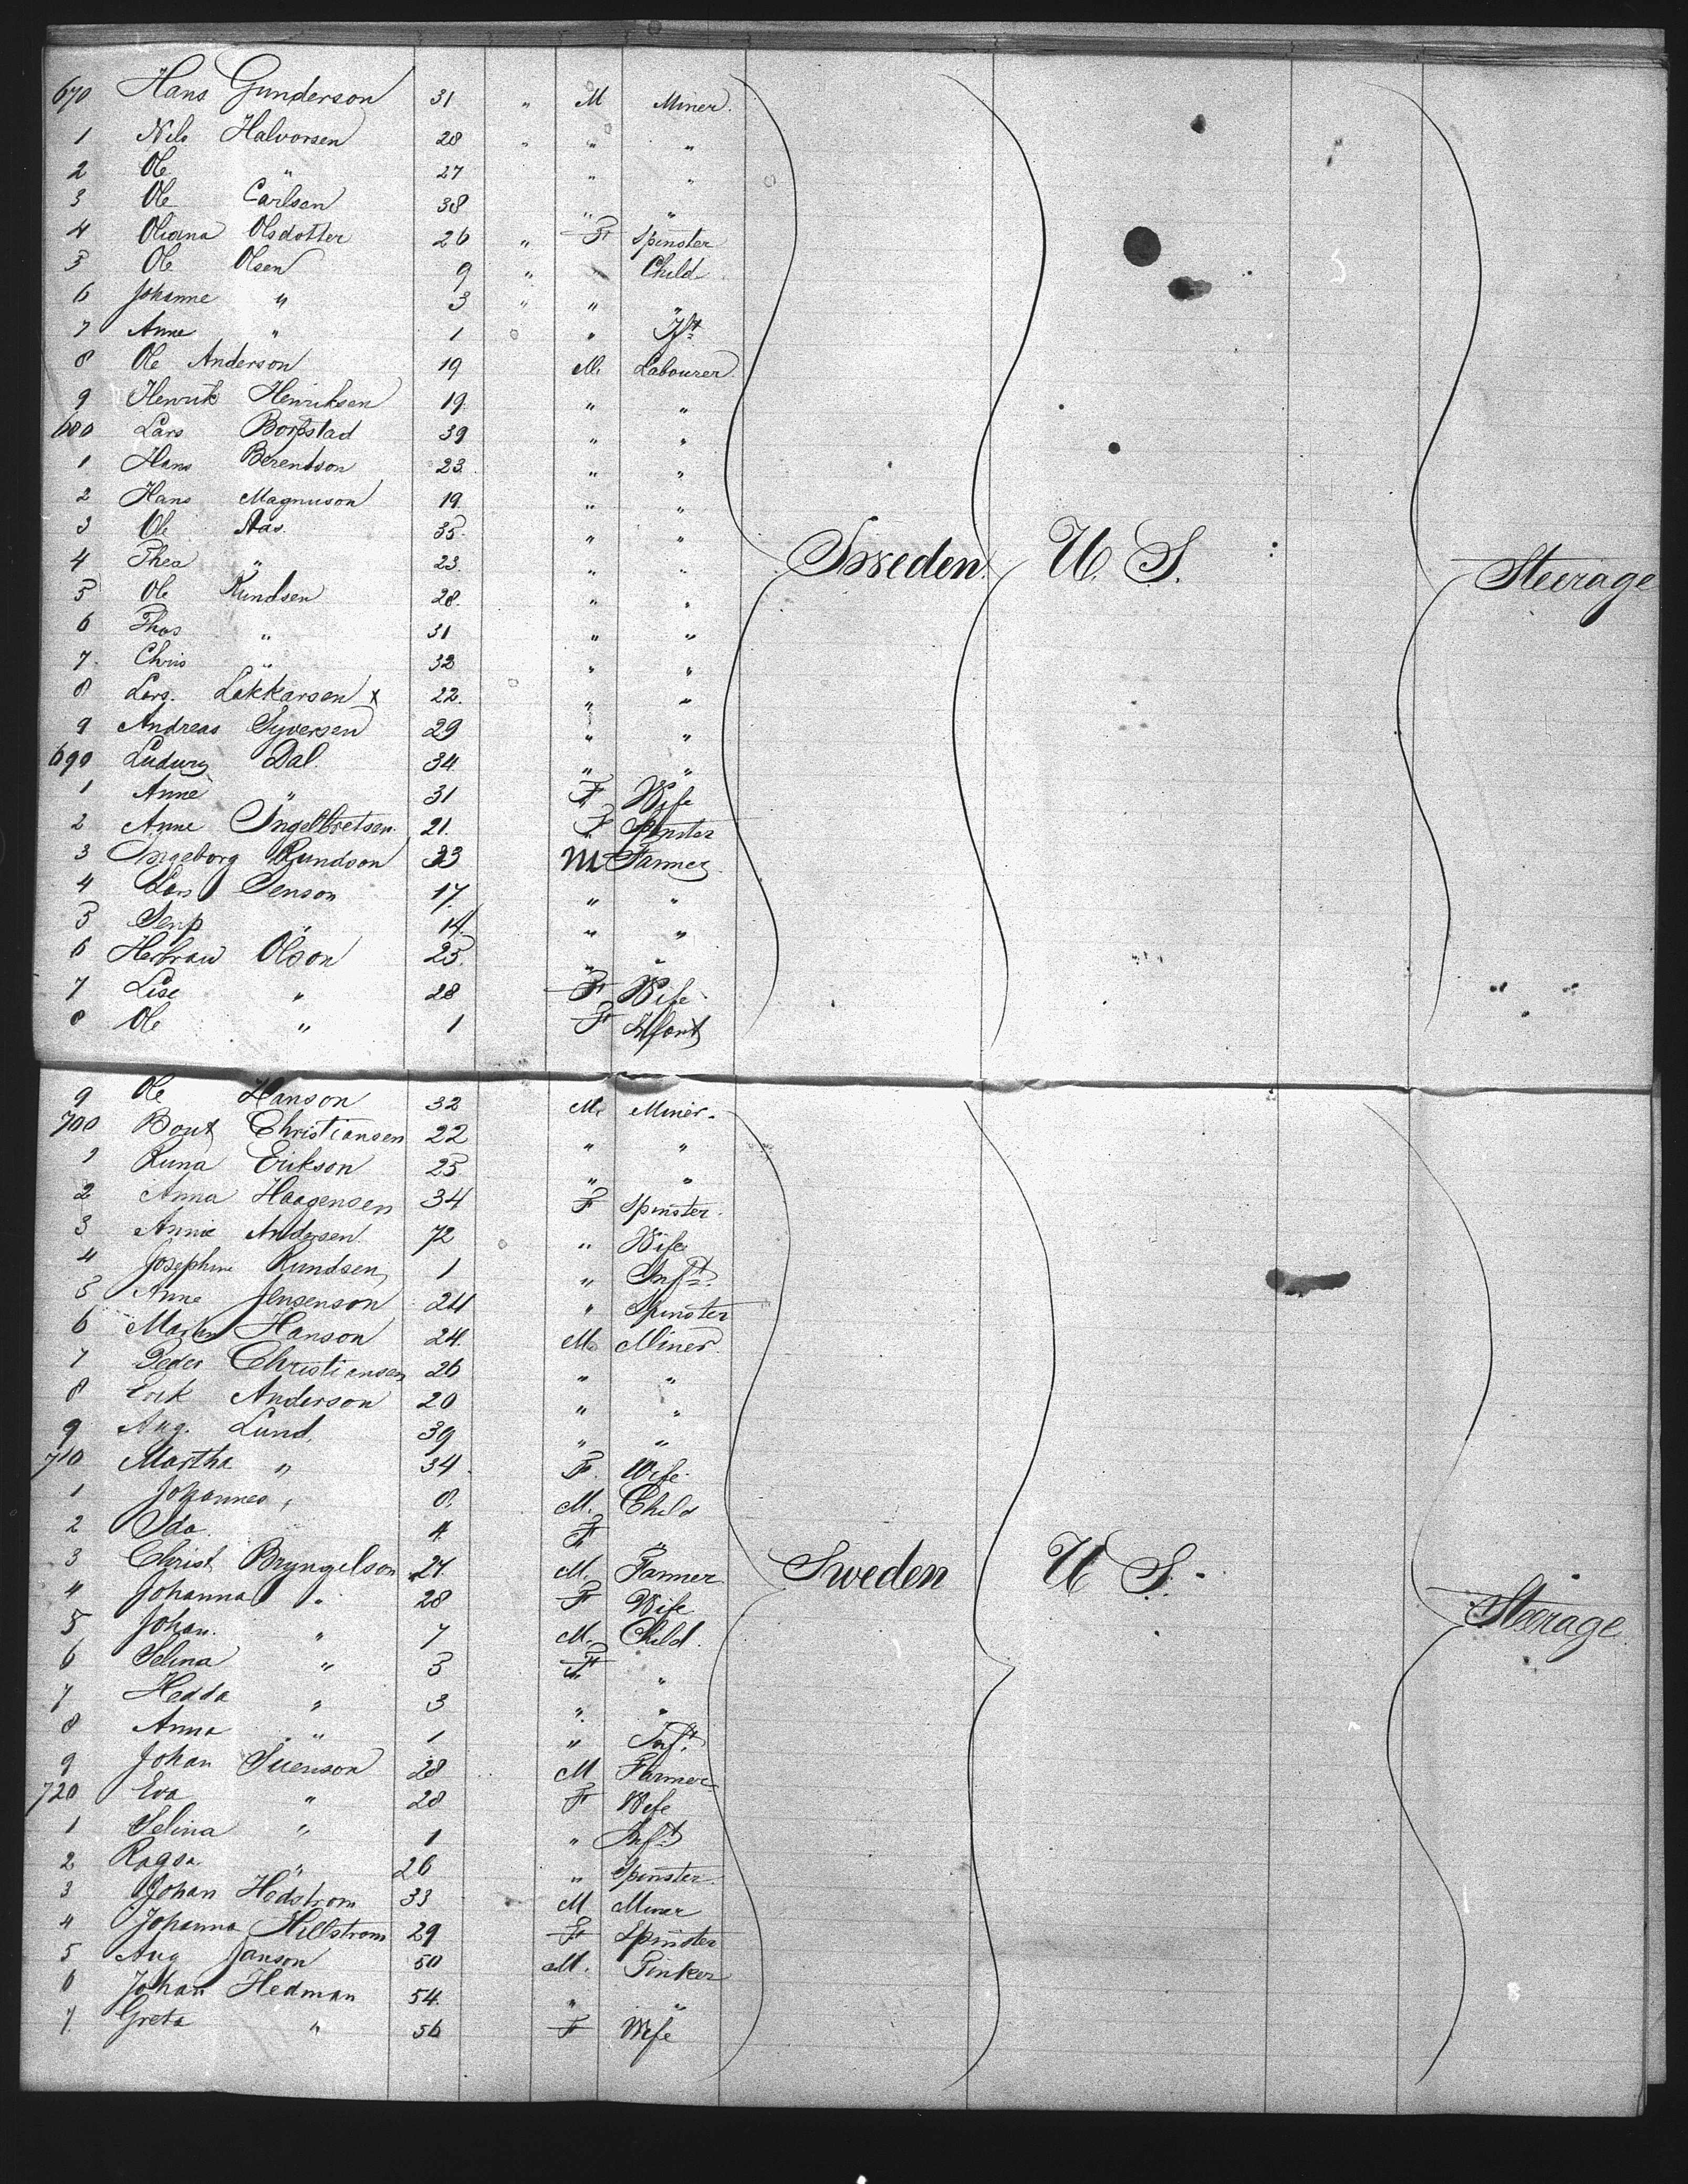 670 Hans Gunderson 31 " M Miner
1 Nils Halvorsen 28 " " "
2 Ole " 27 " "
3 Ole Carlsen 38 " "
4 Oliana Olsdotter 26 " F Spinster
5 Ole Olsen 9 " Child
6 Johanne " 3 " " "
7 Anne " 1 " Ift
8 Ole Anderson 19 M. Labourer
9 Henrik Henriksen 19 " "
680 Lars 39 " "
1 Hans Berentson 23 " "
2 Hans Magnuson 19 " "
3 Ole Aas 35 " "
4 Thea " 23 " "
Sweden U. S. Steerage
5 Ole Kundsen 28 " "
6 Thos " 31 " "
7 Chris " 32 " "
8 Lars Lakkarsen x 22 " "
9 Andreas Syversen 29 " "
690 Ludwig Dal 34 " "
1 Anne " 31 F Wife
2 Anne Ingelbretsen 21 F Spinster
3 Ingeborg Rundson 33 M Farmer
4 Lars Jenson 17 " "
5 " 14 " "
6 Olson 25 " "
7 Lise " 28 F Wife
8 Ole " 1 F Infant
9 Ole Hanson 32 M. Miner
700 Christiansen 22 " "
1 Runa Erikson 25 " "
2 Anna Haagensen 34 F Spinster
3 Annie Andersen 72 " Wife
4 Josephine Kundsen 1 " Inft
5 Anne Jensenson 24 " Spinster
6 Hanson 24 M. Miner
7 Peder Christiansen 26 " "
8 Erik Anderson 20 " "
9 Aug. Lund 39 " "
710 Martha " 34 F. Wife
1 Johannes " 8 M. Child
2 Ida 4 F "
3 Christ Bryngelson 27 M. Farmer
Sweden U. S. Steerage
4 Johanna " 28 F Wife
5 Johan " 7 M. Child
6 Selina " 5 F "
7 Hedda " 3 " "
8 Anna " 1 " Inft
9 Johan Suenson 28 M Farmer
720 Eva " 28 F Wife
1 Selina " 1 " Inft
2 " 26 " Spinster
3 Johan Hedstrom 33 M Miner
4 Johanna Hillstrom 29 F Spinster
5 Aug Janson 50 M. Tinker
6 Johan Hedman 54 " "
7 Greta " 56 F Wife